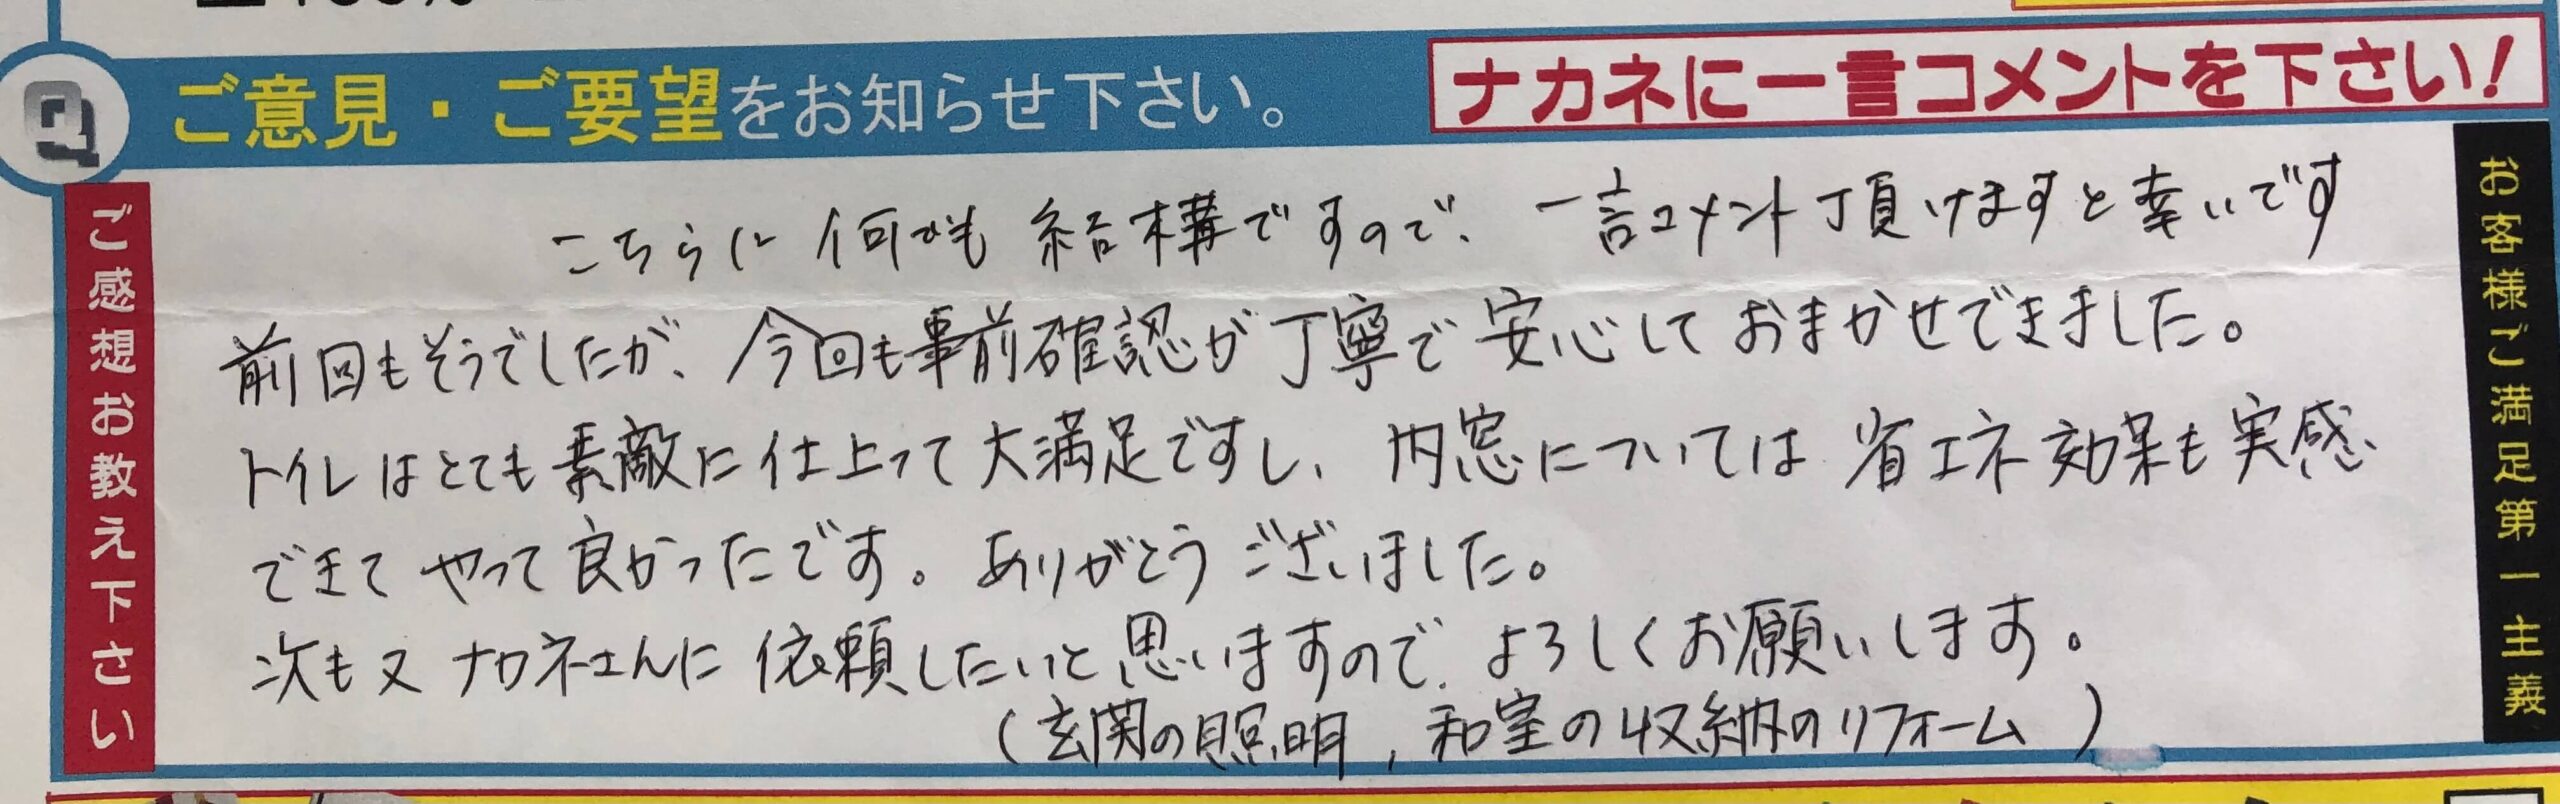 Q ご意見・ご要望をお知らせ下さい。
ナカネに一言コメントを下さい!
ご感想お教え下さい
お客様ご満足第一主義
こちらに何でも結構ですので、一言コメント頂けますと幸いです
前回もそうでしたが、今回も事前確認が丁寧で安心しておまかせできました。
トイレはとても素敵に仕上って大満足ですし、内窓については省エネ効果も実感
できてやって良かったです。ありがとうございました。
次も又ナカネさんに依頼したいと思いますので、よろしくお願いします。
(玄関の照明、和室の収納のリフォーム)